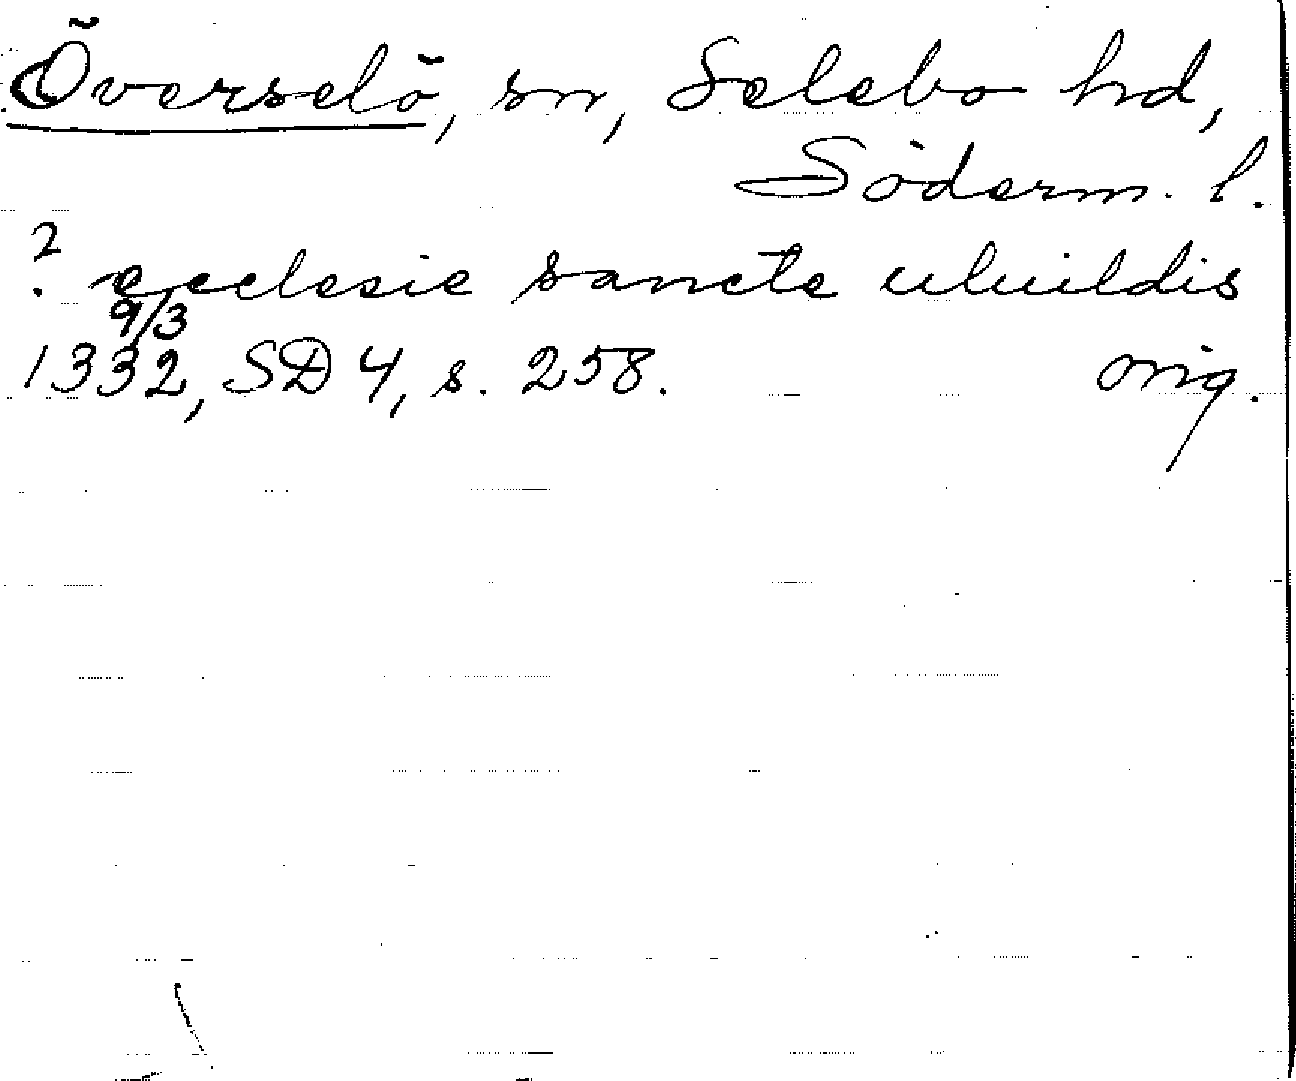 Överselö, sn, Selebo hd,
Söderm. l.
? ecclesie sancte uluildis
9/3
1332, SD 4, s. 258. orig.